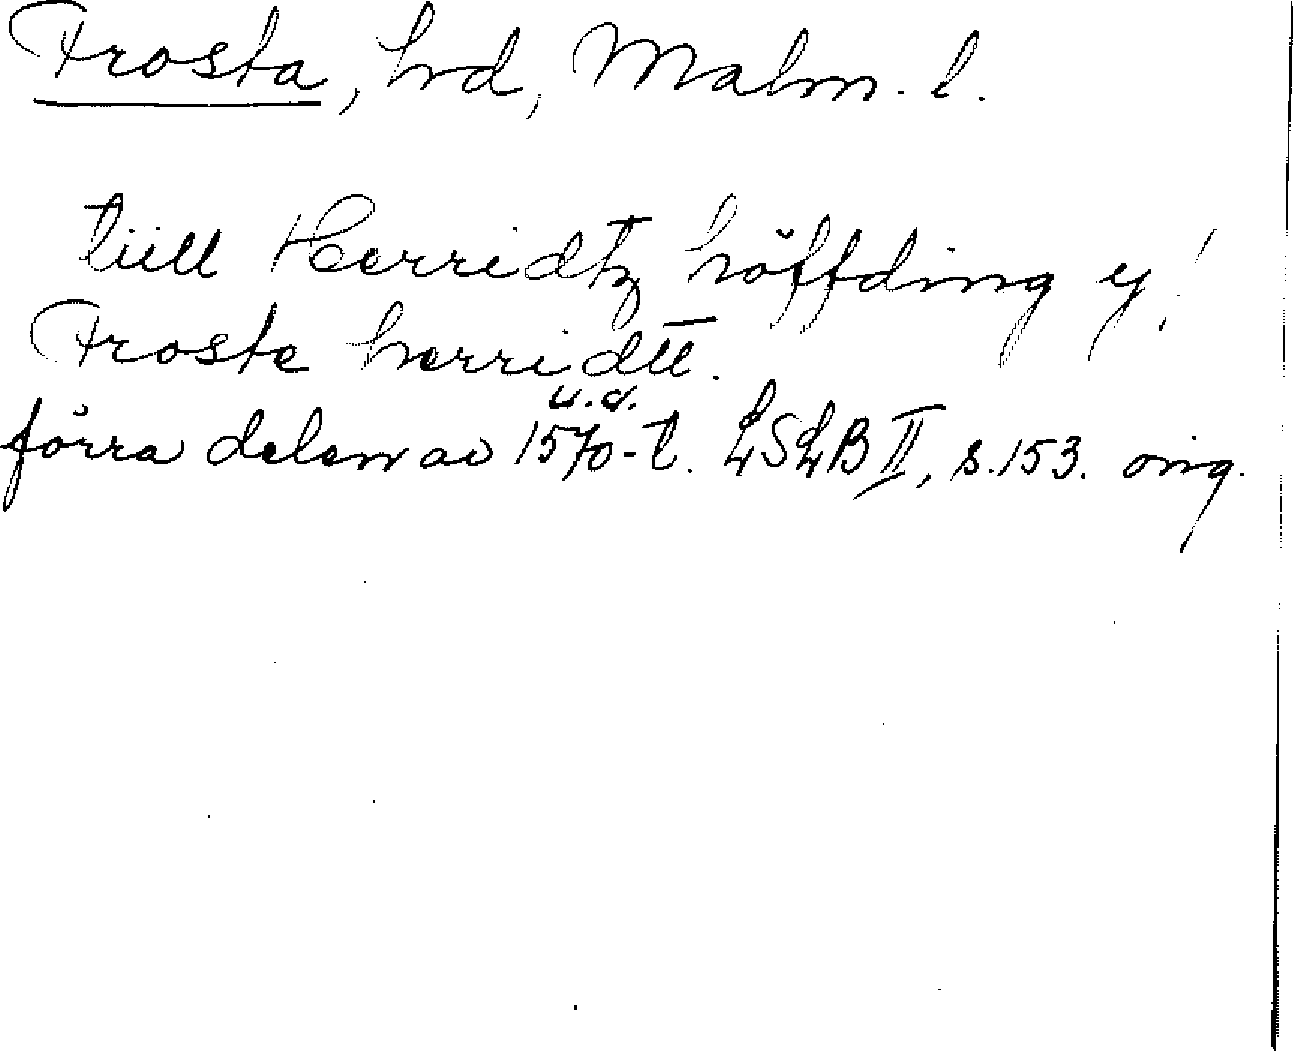 Frosta, hrd, Malm. l.
tiill Herridtz höffding y!
Froste herridtt.
u.d.
förra delen av 1570-t. LSLB II, s. 153. orig.